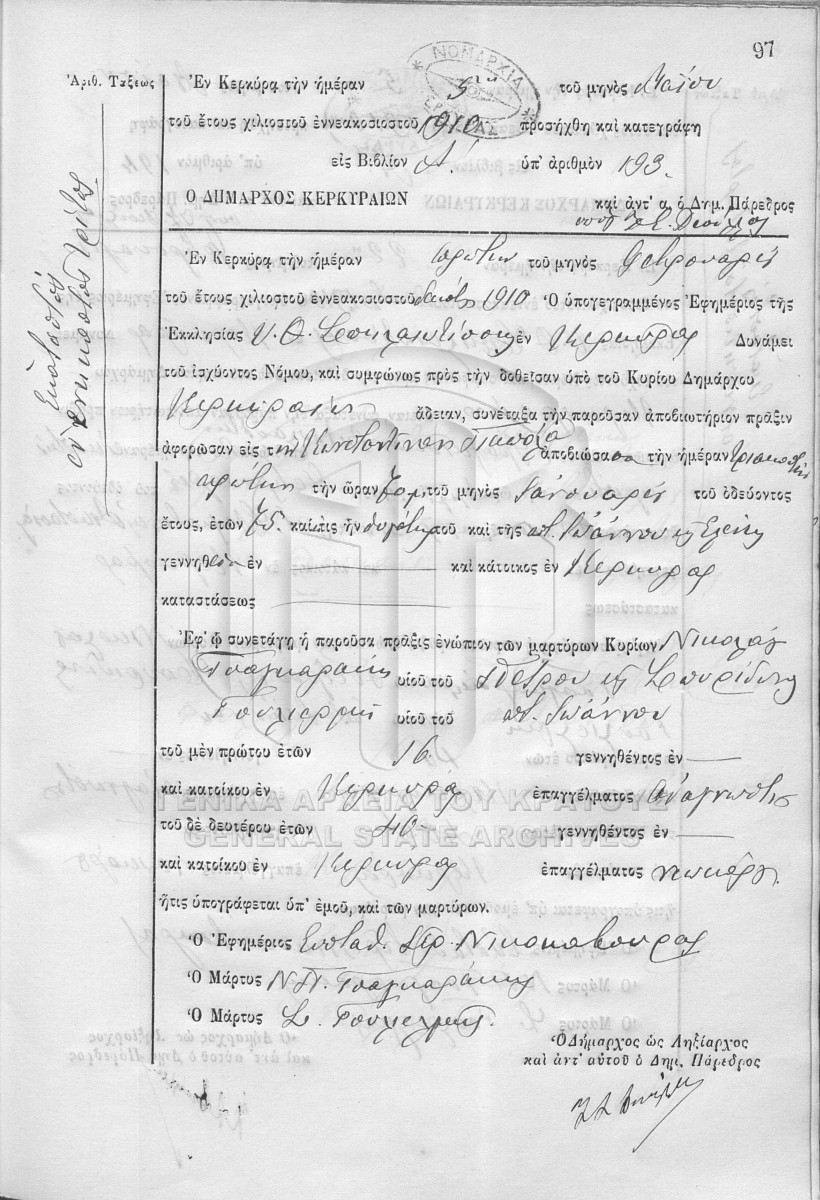 97
Ἀριθ. Τάξεως
Ἑκατοστὸς ἐνενηκοστὸς τρίτος
ΝΟΜΑΡΧΙΑ ΚΕΡΚΥΡΑΣ
Ἐν Κερκύρᾳ τὴν ἡμέραν 5 τοῦ μηνὸς Μαΐου
τοῦ ἔτους χιλιοστοῦ ἐννεακοσιοστοῦ 1910 προσήχθη καὶ κατεγράφη
εἰς Βιβλίον Α΄. ὑπ' ἀριθμὸν 193.
Ὁ ΔΗΜΑΡΧΟΣ ΚΕΡΚΥΡΑΙΩΝ καὶ ἀντ' α. ὁ Δημ. Πάρεδρος
Ἐν Κερκύρᾳ τὴν ἡμέραν πρώτην τοῦ μηνὸς Φεβρουαρίου
τοῦ ἔτους χιλιοστοῦ ἐννεακοσιοστοῦ δεκάτου 1910 Ὁ ὑπογεγραμμένος Ἐφημέριος τῆς
Ἐκκλησίας Υ. Θ. Σπηλαιωτίσσης ἐν Κερκύρᾳ Δυνάμει
τοῦ ἰσχύοντος Νόμου, καὶ συμφώνως πρὸς τὴν δοθεῖσαν ὑπὸ τοῦ Κυρίου Δημάρχου
Κερκυραίων ἄδειαν, συνέταξα τὴν παροῦσαν ἀποβιωτήριον πρᾶξιν
ἀφορῶσαν εἰς τὴν Κωνσταντίναν ἀποβιώσασαν τὴν ἡμέραν τριακοστὴν
πρώτην τὴν ὥραν 7 μ.μ. τοῦ μηνὸς Ἰανουαρίου τοῦ ὁδεύοντος
ἔτους, ἐτῶν 75. καὶ τις ἦν θυγάτηρ τοῦ καὶ τῆς ποτ. Ἰωάννου καὶ Ἑλένης
γεννηθεῖσα ἐν καὶ κάτοικος ἐν Κερκύρᾳ
καταστάσεως
Ἐφ' ᾧ συνετάγη ἡ παροῦσα πρᾶξις ἐνώπιον τῶν μαρτύρων Κυρίων Νικολάου
Τσαγκαράκη υἱοῦ τοῦ Πέτρου καὶ Σπυρίδωνος
Γουλιέρμη υἱοῦ τοῦ ποτ. Ἰωάννου
τοῦ μὲν πρώτου ἐτῶν 16 γεννηθέντος ἐν
καὶ κατοίκου ἐν Κερκύρᾳ ἐπαγγέλματος ἀναγνώστης
τοῦ δὲ δευτέρου ἐτῶν 40 γεννηθέντος ἐν
καὶ κατοίκου ἐν Κερκύρᾳ ἐπαγγέλματος
ἥτις ὑπογράφεται ὑπ' ἐμοῦ, καὶ τῶν μαρτύρων.
Ὁ Ἐφημέριος Εὐσταθ. Νικοκάβουρας
Ὁ Μάρτυς Ν. Π. Τσαγκαράκης
Ὁ Μάρτυς Σ. Γουλιέλμης.
Ὁ Δήμαρχος ὡς Ληξίαρχος
καὶ ἀντ' αὐτοῦ ὁ Δημ. Πάρεδρος
ΓΕΝΙΚΑ ΑΡΧΕΙΑ ΤΟΥ ΚΡΑΤΟΥΣ
GENERAL STATE ARCHIVES